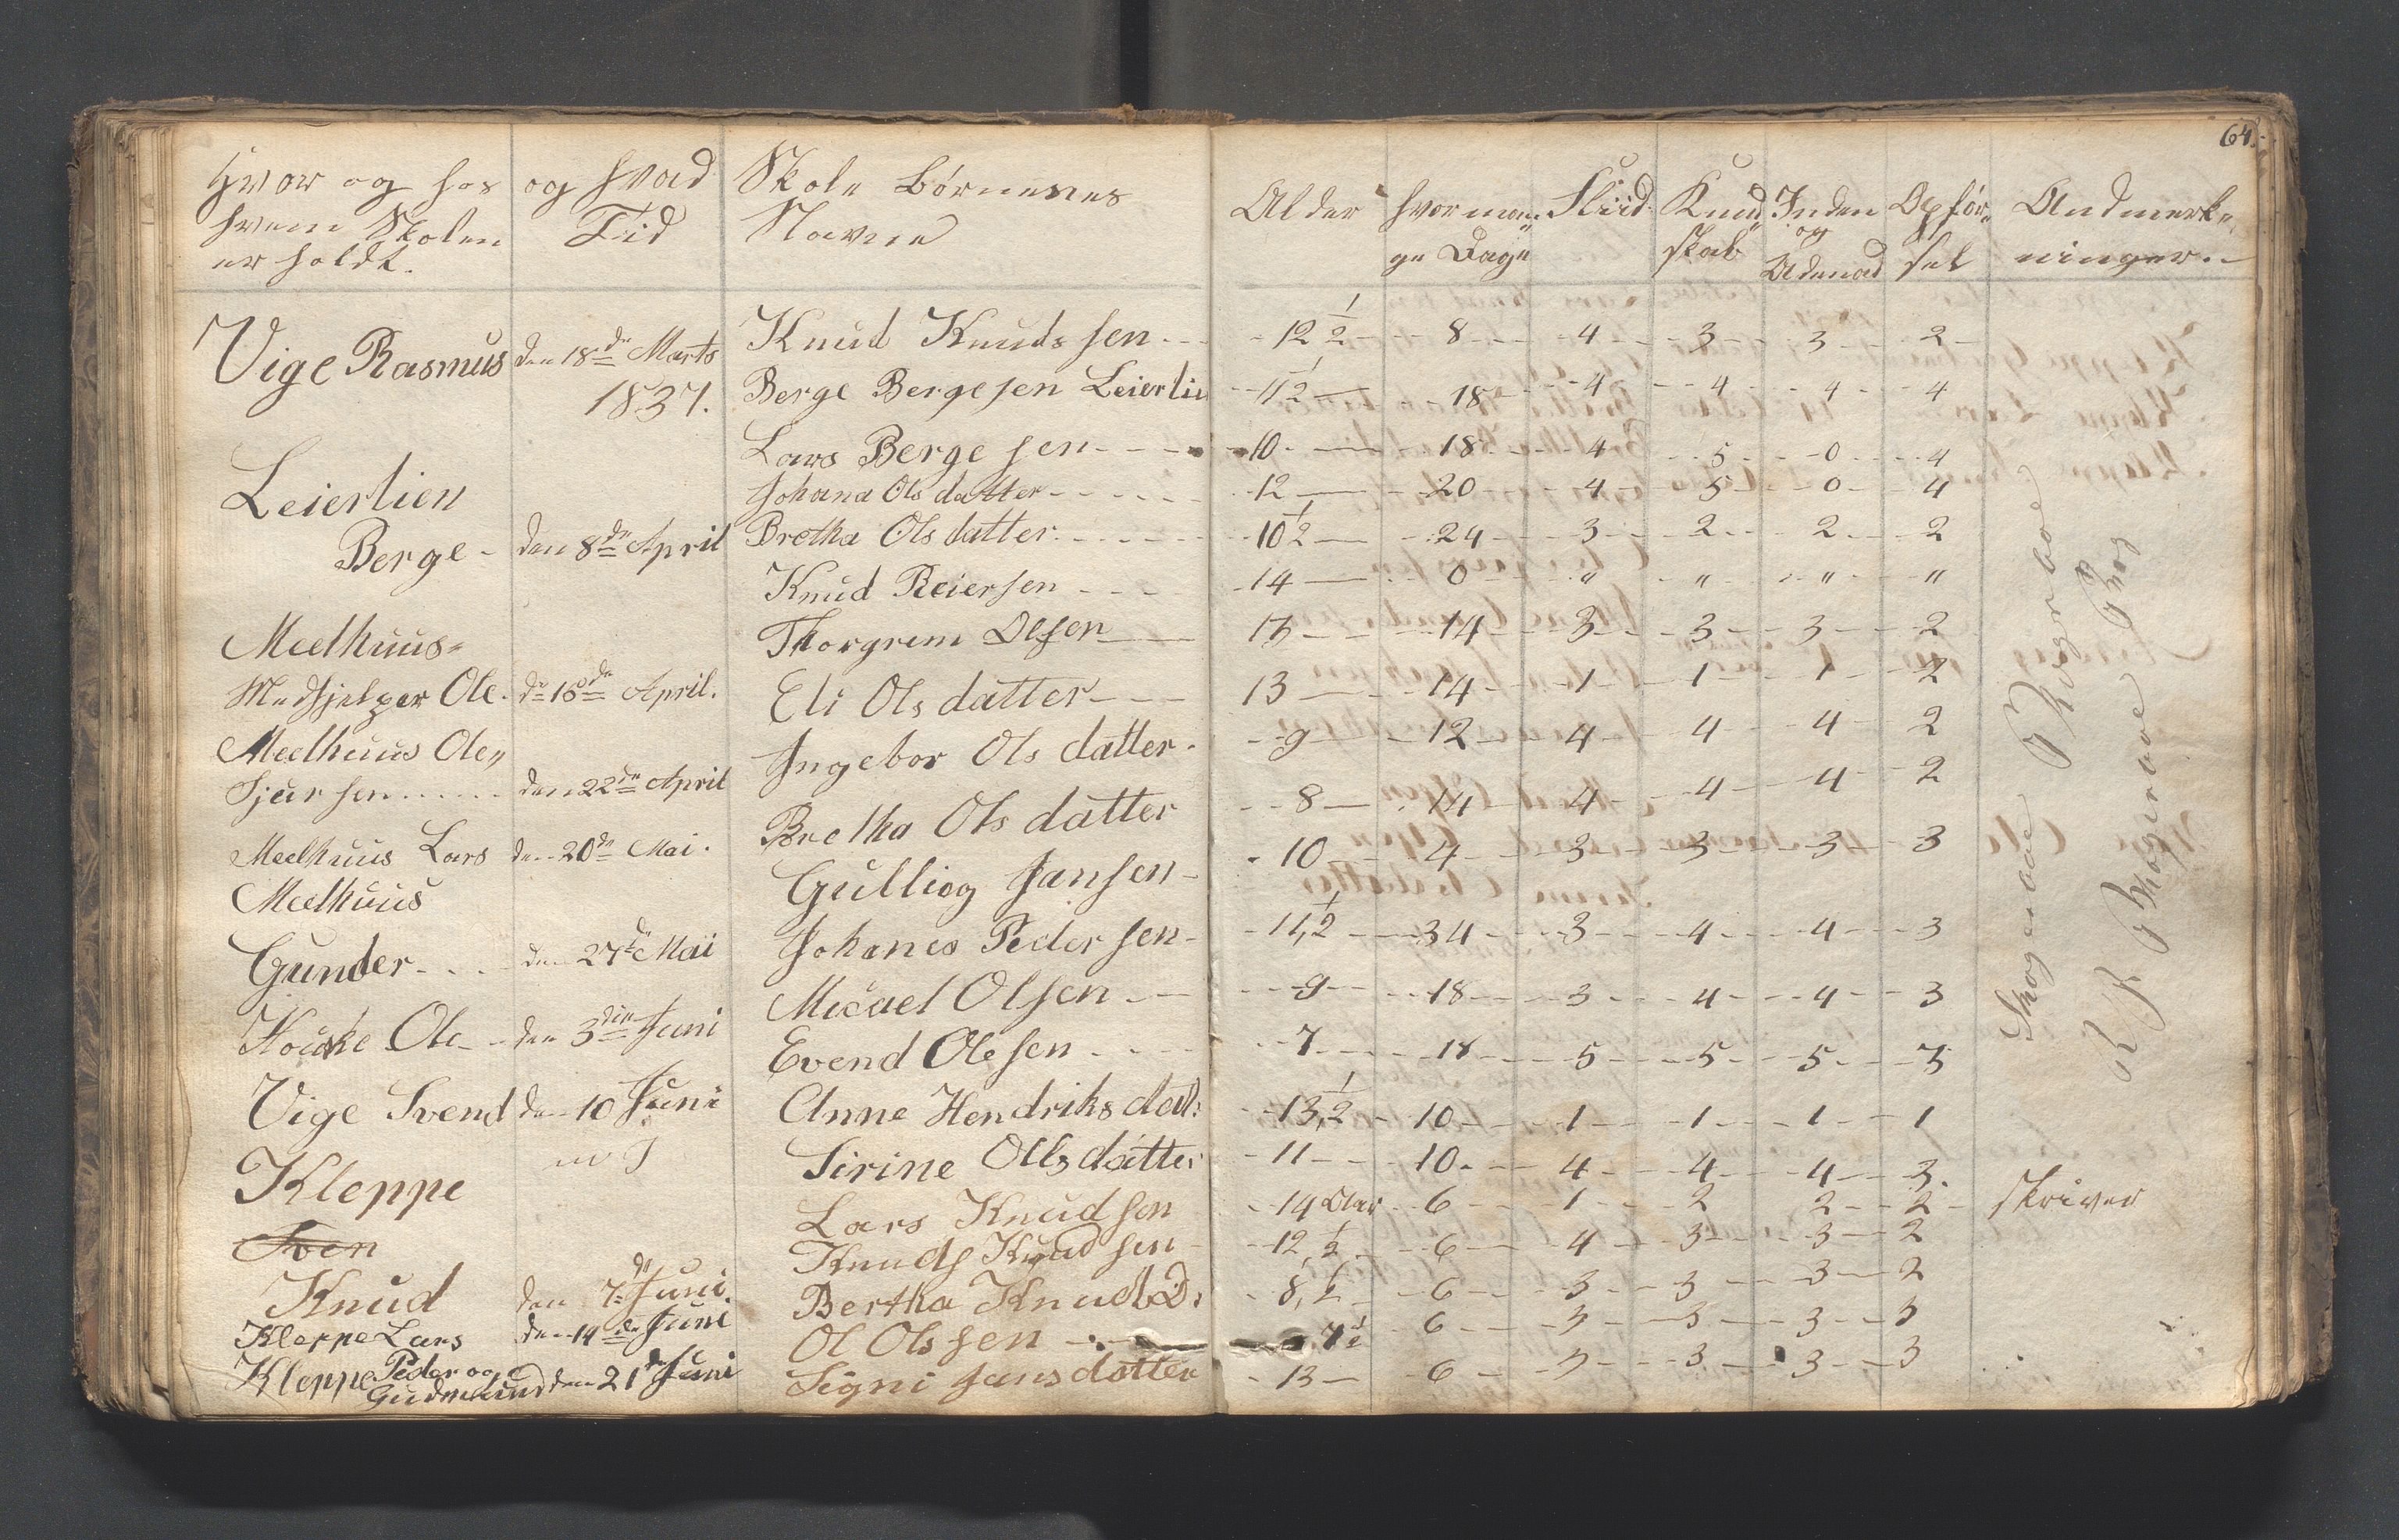 64.
Hvor og hos
hvem Skolen
er holdt.
og hvad
Tid
Skole Børnenes
Navne
Alder
hvor man„
ge Dage
Fliid
Kund„
skab
Inden
og
Udenad
Opfør„
sel
Andmerke„
ninger.
Vige Rasmus den 18de Marts Knud Knudssen 12 1/2 8 4 3 3 2
1837. Berge Bergesen Leierlien 11 1/2 18 4 4 4 4
Lars Bergesen 10 18 4 5 0 4
Leierlien Johana Olsdatter 12 20 4 5 0 4
Berge den 8de April Bretha Olsdatter 10 1/2 24 3 2 2 2
Knud Reiersen 14 0 " " " "
Meelhuus Thorgrem Olsen 13 14 3 3 3 2
Medhjelper Ole. d. 18de April. Eli Olsdatter 13 14 1 1 1 2
Meelhuus Ole„ Ingebor Olsdatter 9 12 4 4 4 2
Sjursen den 22de April Bretha Olsdatter 8 14 4 4 4 2
Meelhuus Lars den 20de Mai. Gulliog Jansen 10 4 3 3 3 3
Meelhuus
Gunder den 27de Mai Johanes Pedersen 11,1/2 34 3 4 4 3
Micael Olsen 9 18 3 4 4 3
Houske Ole den 3die Juni Evend Olesen 7 18 5 5 5 3
Vige Svend den 10 Juni Anne Hendriksdat: 13,1/2 10 1 1 1 1
Kleppe Sirine Olsdatter 11 10 4 4 4 3
Lars Knudsen 14 Aar 6 1 2 2 2 skriver
Sven Knuds Knudsen 12,1/2 6 4 3 3 2
Knud den 7de Juni. Bertha KnudsD: 8,1/2 6 3 3 3 2
Kleppe Lars den 14de Juni Ol Olssen 7 6 3 3 3 3
Kleppe Peder og
Gudmund den 21de Juni Signi Jansdatter 13 6 3 3 3 3